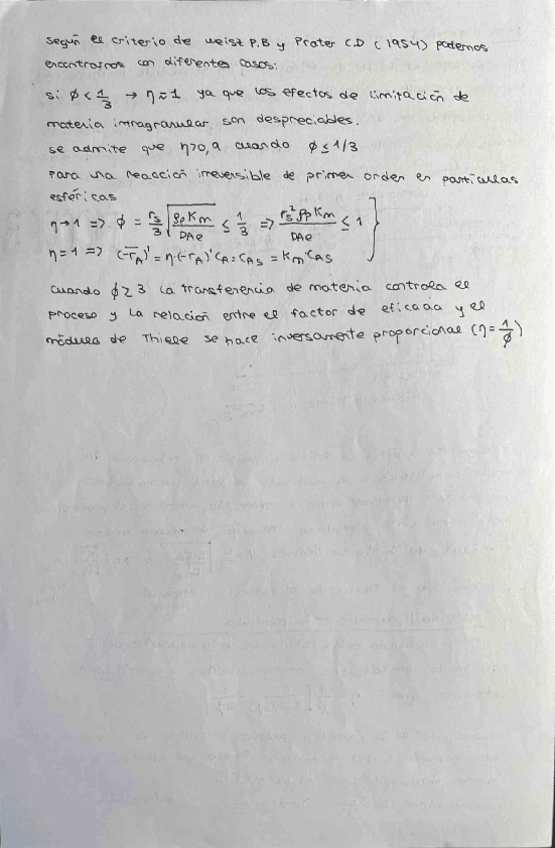 según el criterio de weisz P.B y Prater C.D (1954) podemos
encontrarnos con diferentes casos:
si φ < 1/3 → η ≈ 1 ya que los efectos de limitación de
materia intragranular son despreciables.
se admite que η>0,9 cuando φ ≤ 1/3
Para una reacción irreversible de primer orden en partículas
esféricas
η→1 => φ = rs/3 √(ρp Km/DAe) ≤ 1/3 => rs² ρp Km/DAe ≤ 1
η=1 => (-r̄A)' = η(-rA)' CA=CAS = Km CAS
cuando φ ≥ 3 la transferencia de materia controla el
proceso y la relación entre el factor de eficacia y el
módulo de Thiele se hace inversamente proporcional (η = 1/φ)